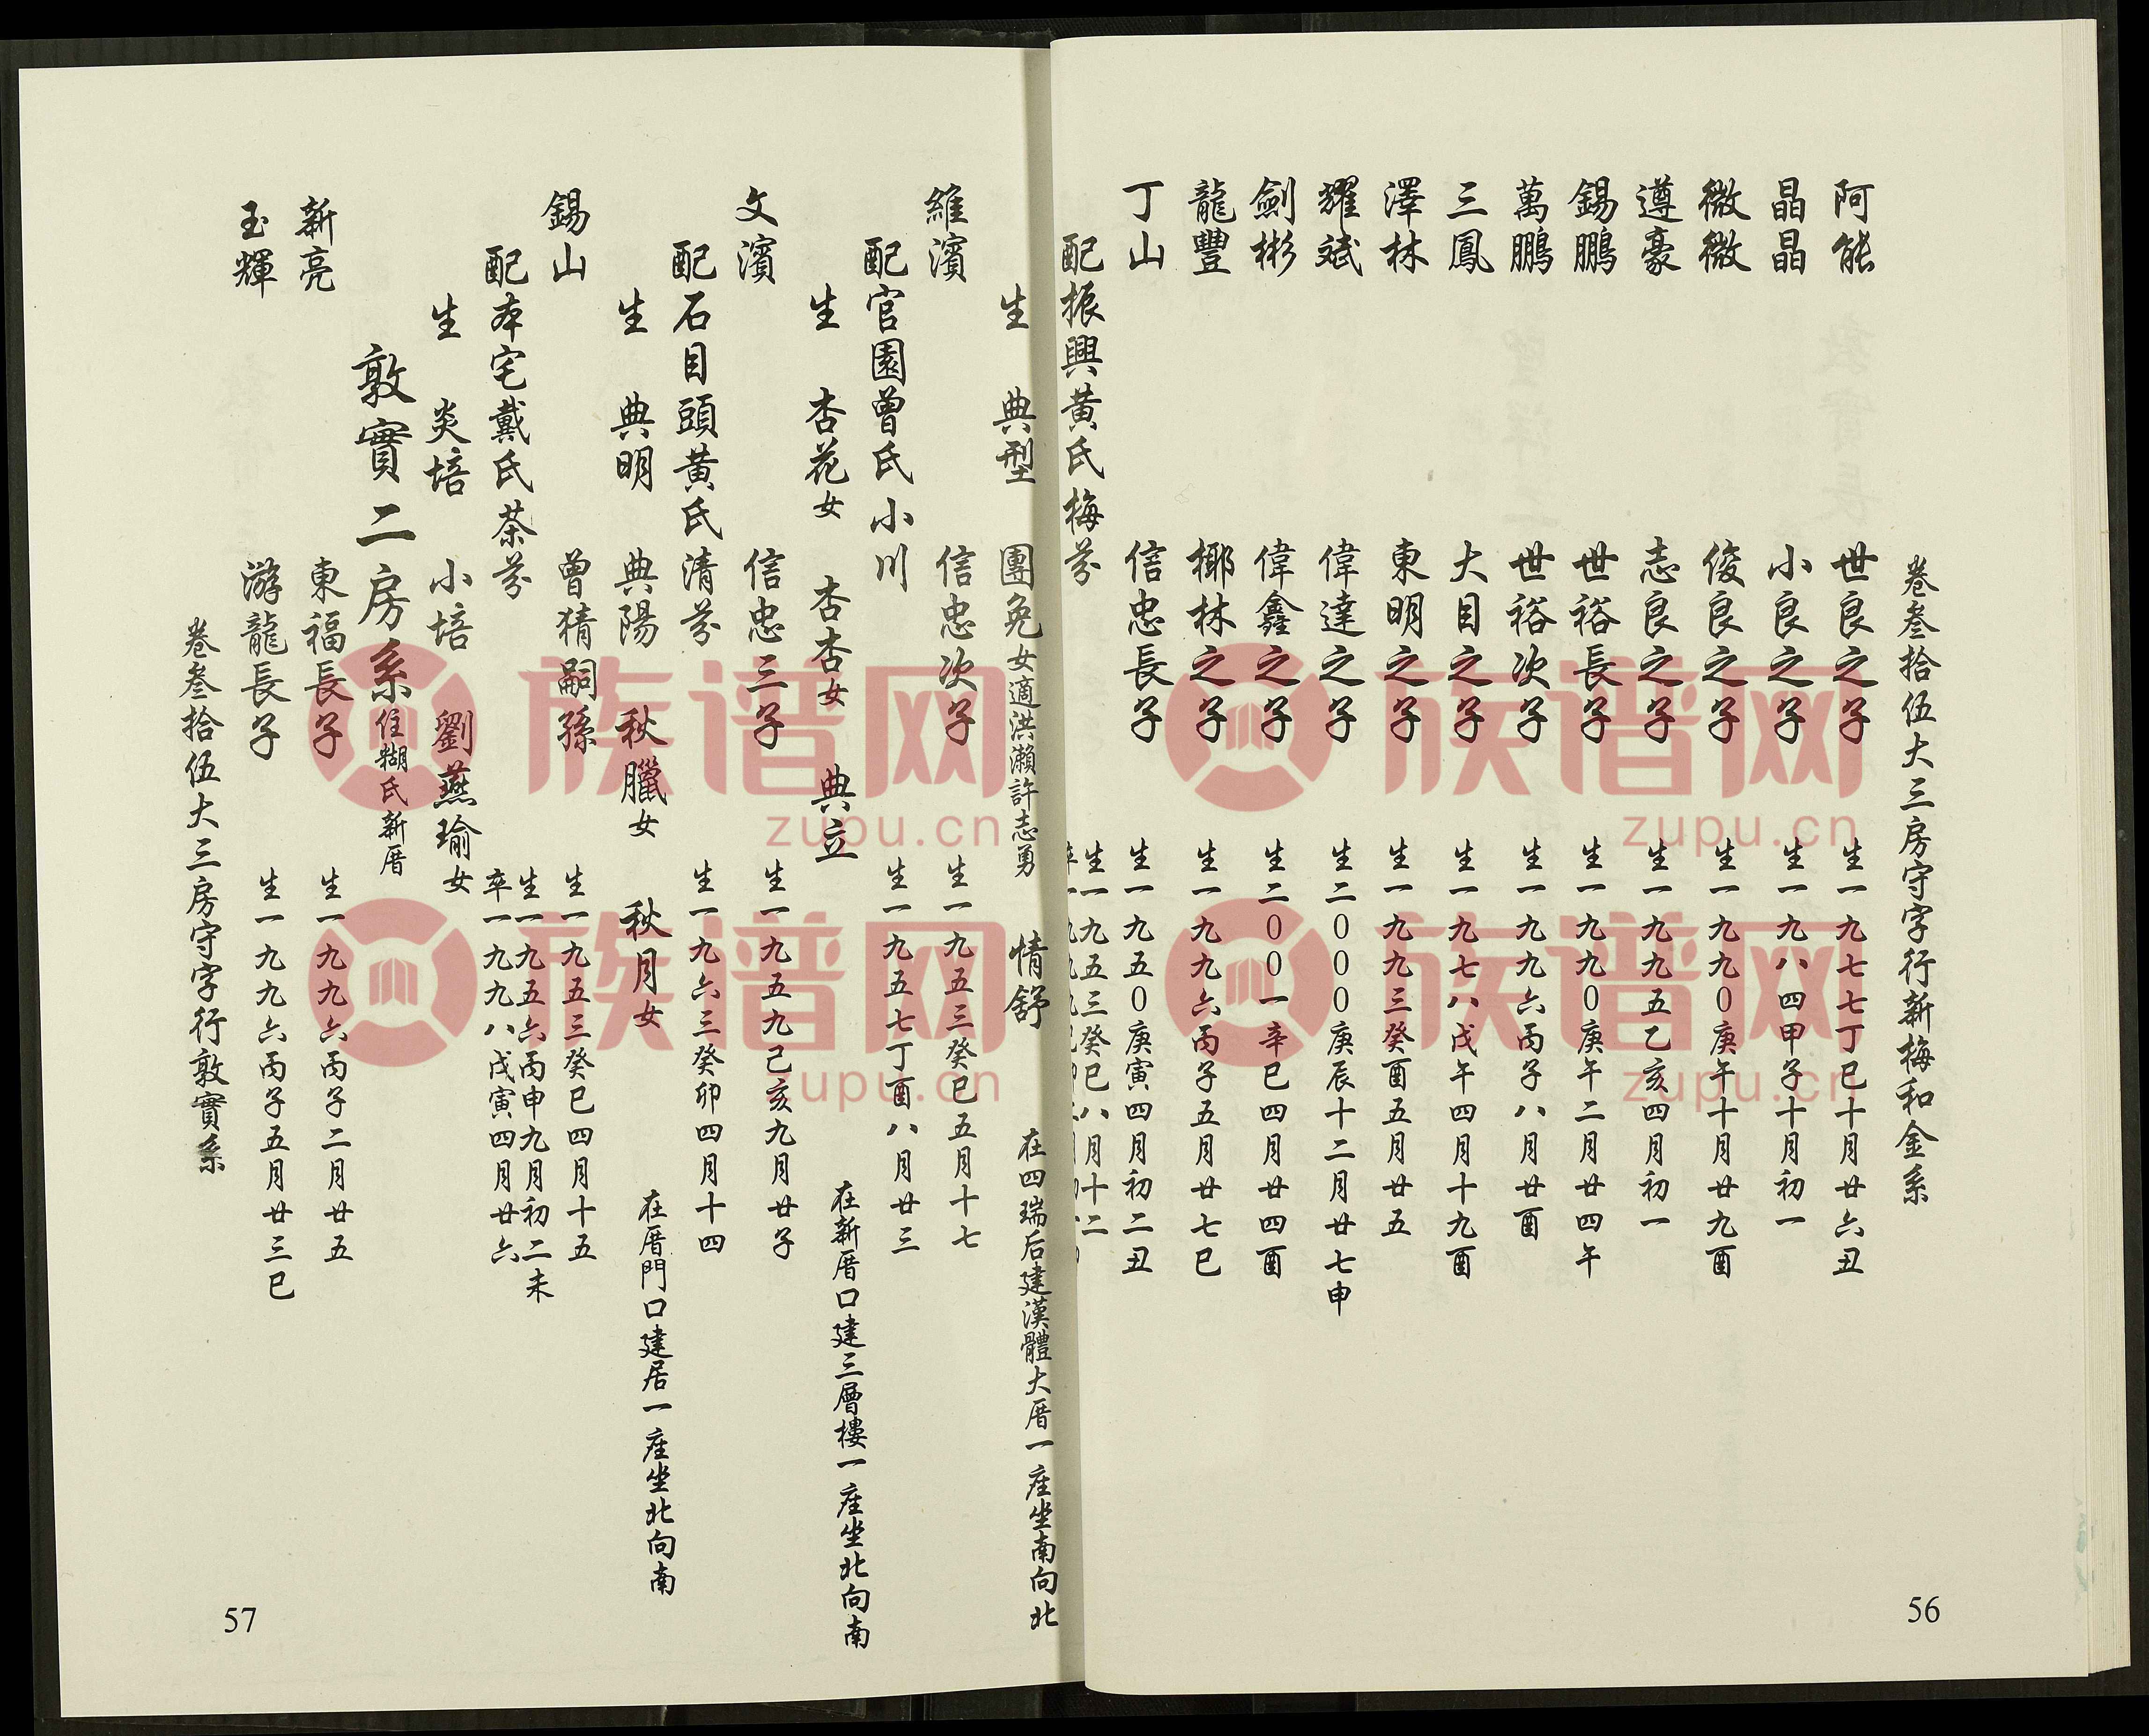 卷叁拾伍大三房守字行新梅和金系
阿能 世良之子 生一九七七丁巳十月廿六丑
晶晶 小良之子 生一九八四甲子十月初一
微微 俊良之子 生一九九0庚午十月廿九酉
遵豪 志良之子 生一九九五乙亥四月初一
錫鵬 世裕長子 生一九九0庚午二月廿四午
萬鵬 世裕次子 生一九九六丙子八月廿酉
三鳳 大目之子 生一九七八戊午四月十九酉
澤林 東明之子 生一九九三癸酉五月廿五
耀斌 偉達之子 生二000庚辰十二月廿七申
劍彬 偉鑫之子 生二00一辛巳四月廿四酉
龍豐 椰林之子 生一九九六丙子五月廿七巳
丁山 信忠長子 生一九五0庚寅四月初二丑
配振興黃氏梅芬 生一九五三癸巳八月十二
56
生 典型 團兔女適洪瀨許志勇 情舒 在四瑞后建漢體大厝一座坐南向北
維濱 信忠次子 生一九五三癸巳五月十七
配官園曾氏小川 生一九五七丁酉八月廿三
生 杏花女 杏杏女 典立 在新厝口建三層樓一座坐北向南
文濱 信忠三子 生一九五九己亥九月廿子
配石目頭黃氏清芬 生一九六三癸卯四月十四
生 典明 典陽 秋臘女 秋月女 在厝門口建居一座坐北向南
錫山 曾猜嗣孫 生一九五三癸巳四月十五
配本宅戴氏茶芬 生一九五六丙申九月初二未
卒一九九八戊寅四月廿六
生 炎培 小培 劉燕瑜女
敦實二房系 住糊氏新厝
新亮 東福長子 生一九九六丙子二月廿五
玉輝 游龍長子 生一九九六丙子五月廿三巳
卷叁拾伍大三房守字行敦實系
57
族谱网
zupu.cn
族谱网
zupu.cn
族谱网
zupu.cn
族谱网
zupu.cn